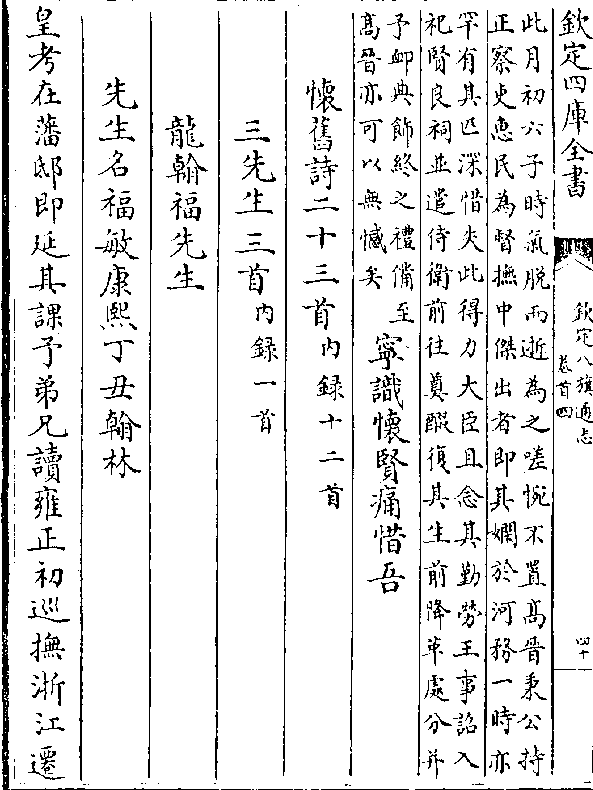 欽定四庫全書
欽定八旗通志
卷首四
四十
此月初六子時氣脫而逝為之嗟惋不置高晉秉公持
正察吏惠民為督撫中傑出者即其嫻於河務一時亦
罕有其匹深惜失此得力大臣且念其勤勞王事詔入
祀賢良祠並遣侍衛前往奠醊復其生前降革處分并
予卹典飾終之禮備至
高晉亦可以無憾矣
寧識懷賢痛惜吾
懷舊詩二十三首內錄十二首
三先生三首內錄一首
龍翰福先生
先生名福敏康熙丁丑翰林
皇考在藩邸即延其課予弟兄讀雍正初巡撫浙江遷